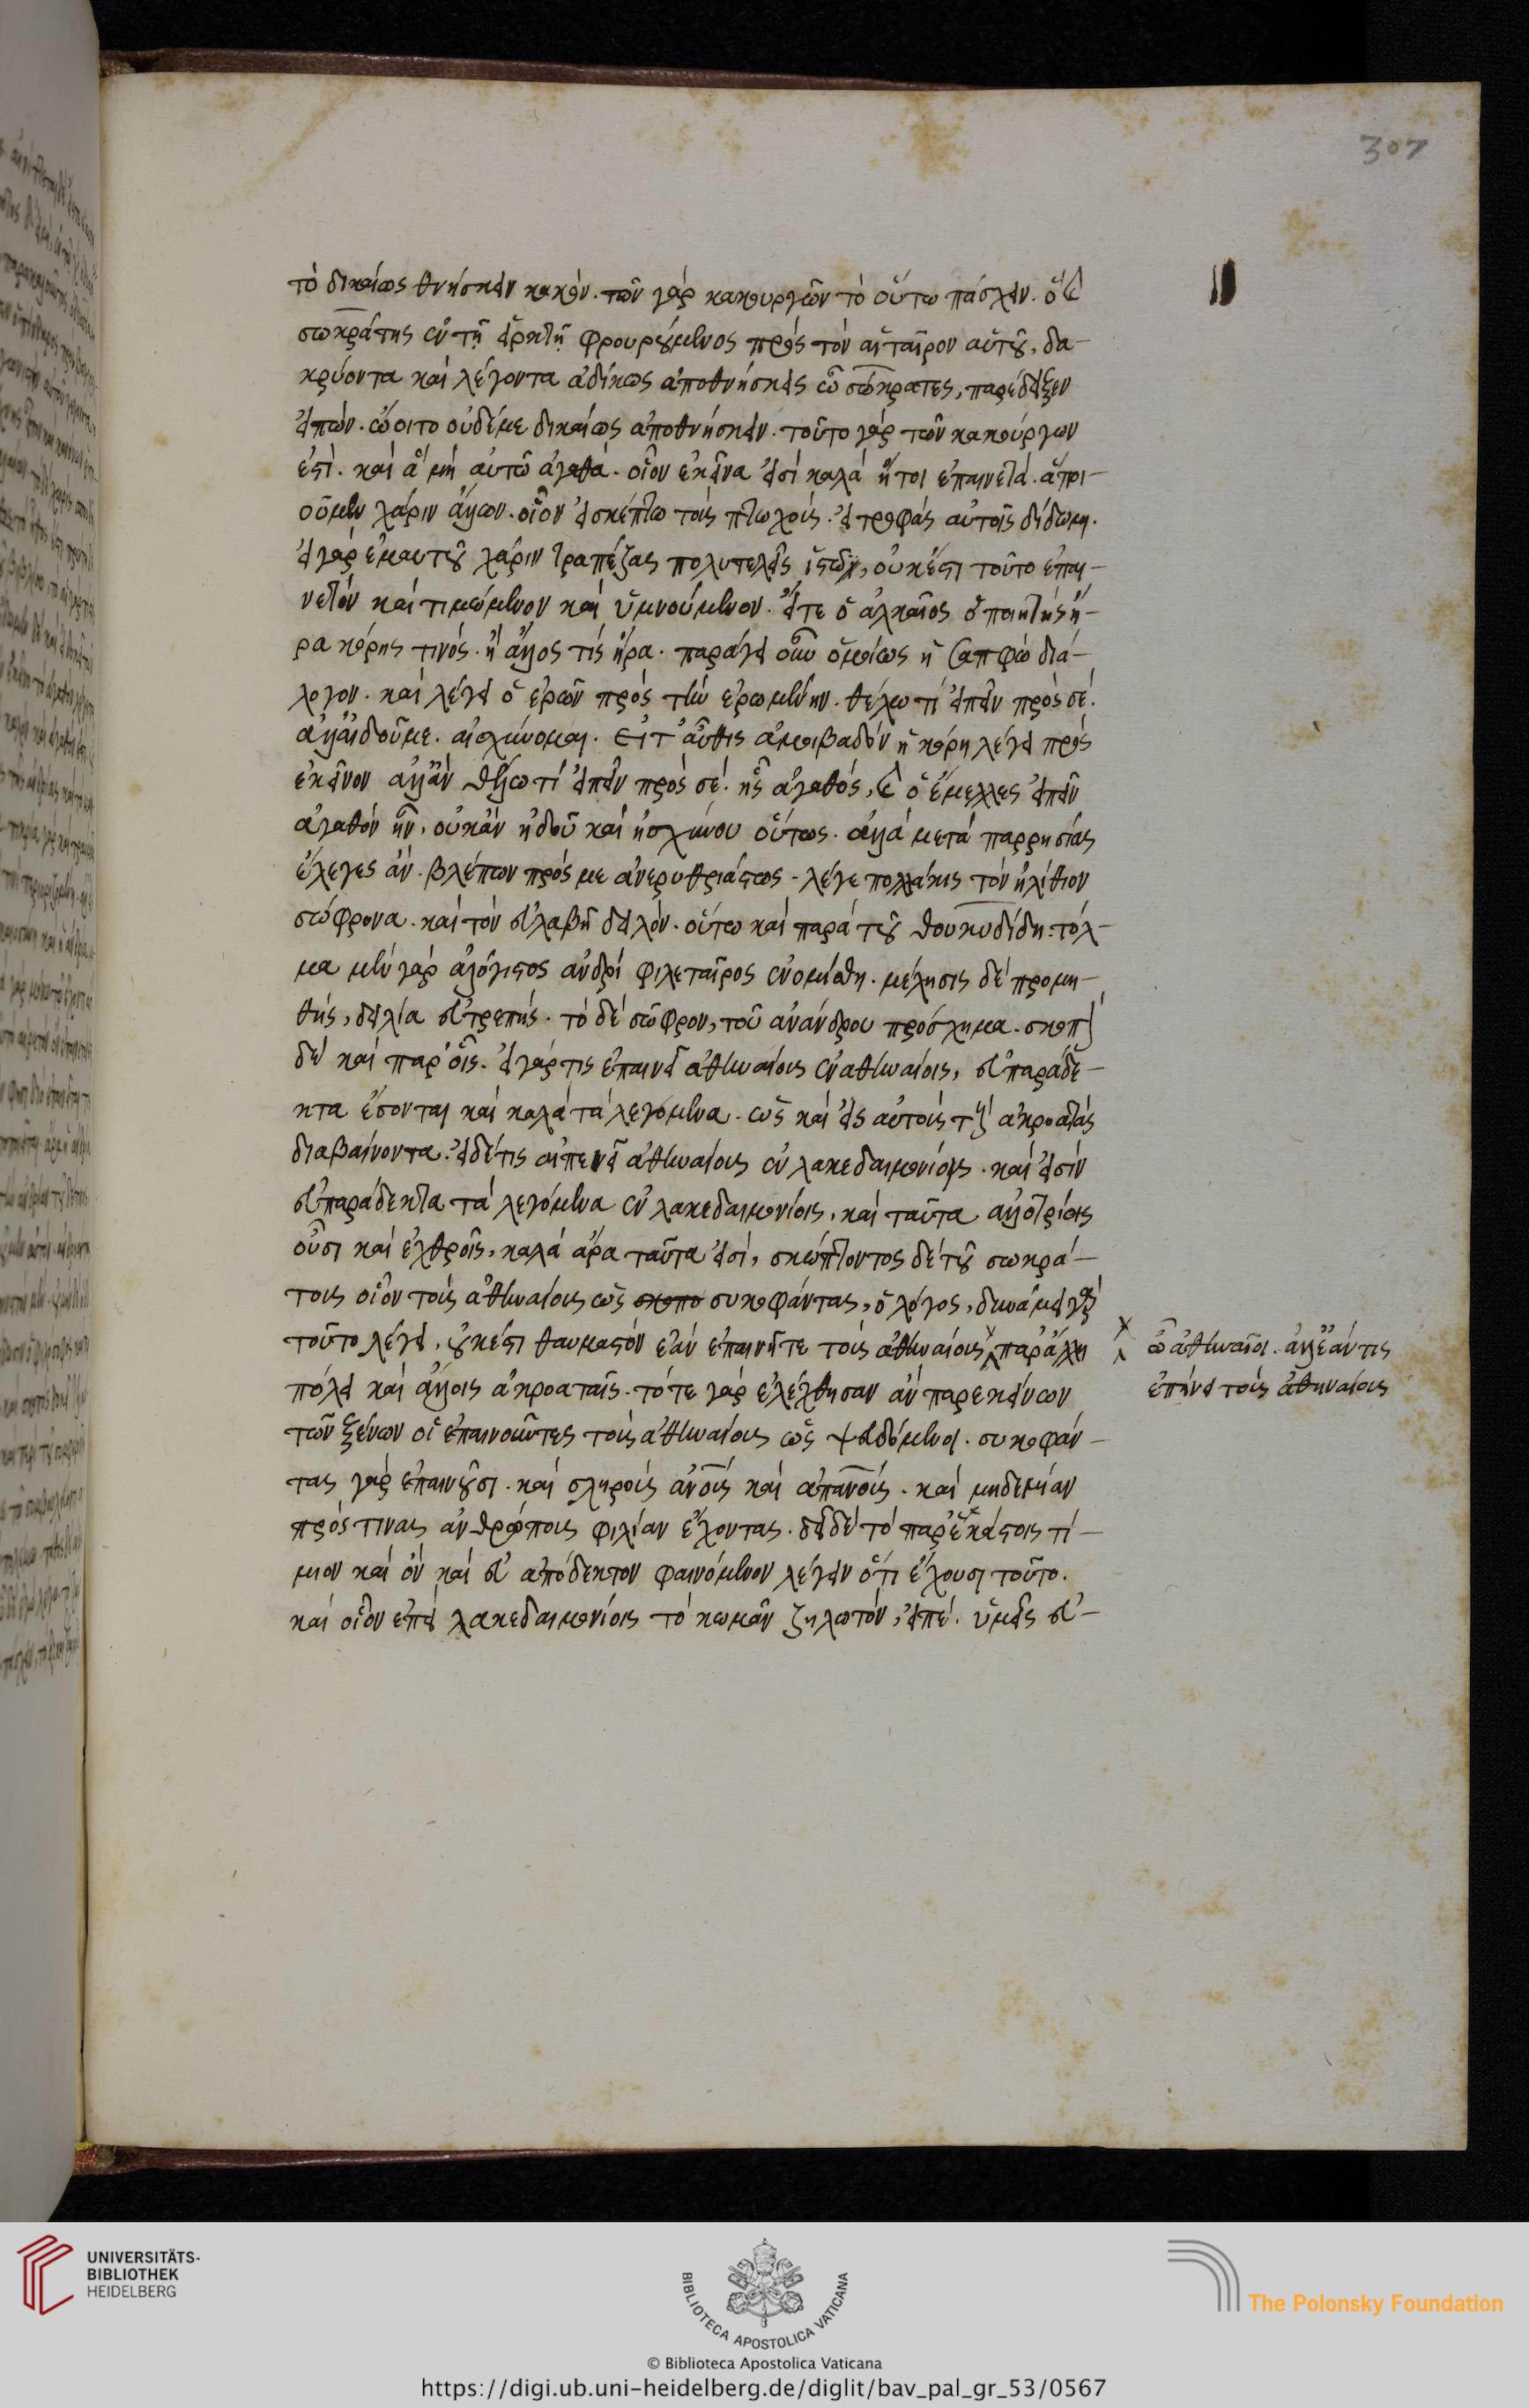 307
τὸ δικαίως θνήσκειν κακόν. τῶν γὰρ κακουργῶν τὸ οὕτω πάσχειν. ὅθεν
σωκράτης ἐν τῇ εἱρκτῇ φρουρούμενος πρὸς τὸν αἱταῖρον αὐτοῦ, δα-
κρύοντα καὶ λέγοντα ἀδίκως ἀποθνήσκεις ὦ σώκρατες, παρέδειξεν
εἰπών. ὤοιτο οὐδέμε δικαίως ἀποθνήσκειν. τοῦτο γὰρ τῶν κακούργων
ἐστί. καὶ ἃ μὴ αὐτῶ ἀγαθά. οἷον ἐκεῖνα εἰσὶ καλὰ ἤτοι ἐπαινετά. ἃ ποι-
οῦμεν χάριν ἄλλων. οἷον εἰ σκέπτω τοὺς πτωχούς. εἰ τροφὰς αὐτοῖς δίδωμι.
εἰ γὰρ ἐμαυτοῦ χάριν τραπέζας πολυτελεῖς ἱστῶν, οὐκ ἔστι τοῦτο ἐπαι-
νετὸν καὶ τιμώμενον καὶ ὑμνούμενον. εἴτε ὁ ἀλκαῖος ὁ ποιητὴς ἤ-
ρα κόρης τινός. ἢ ἄλλος τίς ἤρα. παράγει οὖν ὁμοίως ἡ Σαπφὼ διά-
λογον. καὶ λέγει ὁ ἐρῶν πρὸς τὴν ἐρωμένην. θέλω τί εἰπεῖν πρὸς σέ.
ἀλλ' αἰδοῦμε. αἰσχύνομαι. Εἶτ' αὖθις ἀμοιβαδὸν ἡ κόρη λέγει πρὸς
ἐκεῖνον ἀλλ' ἂν θέλω τί εἰπεῖν πρὸς σέ. ἦς ἀγαθός, καὶ ὃ ἔμελλες εἰπεῖν
ἀγαθὸν ἦν, οὐκ ἂν ἠδοῦ καὶ ἠσχύνου οὕτως. ἀλλὰ μετὰ παρρησίας
ἔλεγες ἂν. βλέπων πρός με ἀνερυθριάστως. λέγε πολλάκις τὸν ἠλίθιον
σώφρονα. καὶ τὸν εὐλαβῆ δειλόν. οὕτω καὶ παρὰ τοῦ θουκυδίδη: τόλ-
μα μὲν γὰρ ἀλόγιστος ἀνδρὶ φιλεταῖρος ἐνομίσθη. μέλησις δὲ προμη-
θὴς, δειλία εὐτρεπής. τὸ δὲ σῶφρον, τοῦ ἀνάνδρου πρόσχημα. σκοπεῖν
δὲ καὶ παρ' οἷς. εἰ γάρ τις ἐπαινεῖ ἀθηναίους ἐν ἀθηναίοις, εὐπαράδε-
κτα ἔσονται καὶ καλὰ τὰ λεγόμενα. ὡς καὶ εἰς αὐτοὺς τοὺς ἀκροατὰς
διαβαίνοντα. εἰ δέ τις αἰπενεῖ ἀθηναίους ἐν λακεδαιμονίοις. καὶ εἰσὶν
εὐπαράδεκτα τὰ λεγόμενα ἐν λακεδαιμονίοις, καὶ ταῦτα ἀλλοτρίοις
οὖσι καὶ ἐχθροῖς, καλὰ ἄρα ταῦτα εἰσί, σκώπτοντος δὲ τοῦ σωκρά-
τους οἷον τοὺς ἀθηναίους ὡς σκοπο συκοφάντας, ὁ λόγος, δυνάμει γὰρ
τοῦτο λέγει, οὐκ ἔστι θαυμαστὸν ἐὰν ἐπαινῆτε τοὺς ἀθηναίους παρ' ἄλλη
ὦ ἀθηναῖοι. ἀλλ' ἐάν τις
ἐπήνει τοὺς ἀθηναίους
πόλει καὶ ἄλλοις ἀκροαταῖς. τότε γὰρ ἐλέχθησαν ἂν παρ ἐκείνων
τῶν ξένων οἱ ἐπαινοῦντες τοὺς ἀθηναίους ὡς ψευδόμενοι. συκοφάν-
τας γὰρ ἐπαινοῦσι. καὶ σληροὺς ἀνοὺς καὶ ἀπανούς. καὶ μηδεμίαν
πρὸς τινας ἀνθρώπους φιλίαν ἔχοντας. δεῖ δὲ τὸ παρ' ἑκάστοις τί-
μιον καὶ ὂν καὶ εὐαπόδεκτον φαινόμενον λέγειν ὅτι ἔχουσι τοῦτο.
καὶ οἷον ἐπεὶ λακεδαιμονίοις τὸ κωμᾶν ζηλωτόν, εἰπέ. ὑμεῖς εὐ-
UNIVERSITÄTS-
BIBLIOTHEK
HEIDELBERG
BIBLIOTECA APOSTOLICA VATICANA
The Polonsky Foundation
© Biblioteca Apostolica Vaticana
https://digi.ub.uni-heidelberg.de/diglit/bav_pal_gr_53/0567